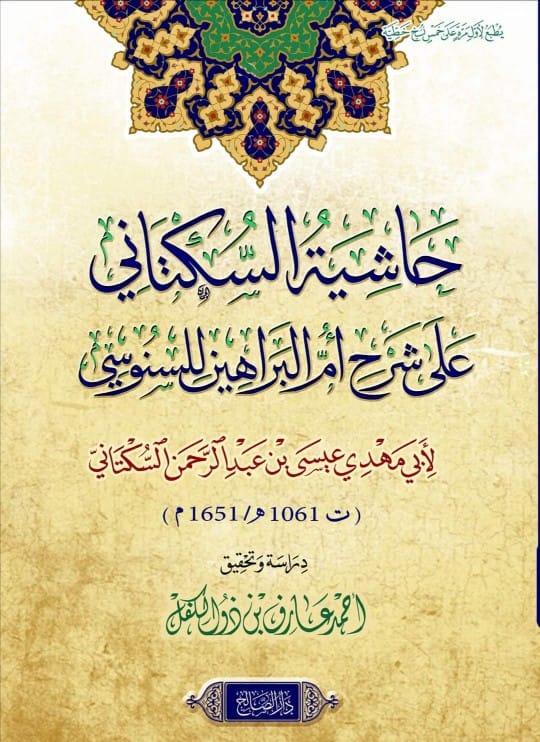 يُطْبَعُ لِأَوَّلِ مَرَّةٍ عَلَى خَمْسِ نُسَخٍ خَطِّيَّةٍ
حَاشِيَةُ السُّكْتَانِي
عَلَى شَرْحِ أُمِّ البَرَاهِينِ لِلسَّنُوسِي
لِأَبِي مَهْدِي عِيسَى بْنِ عَبْدِ الرَّحْمَنِ السُّكْتَانِيّ
( ت 1061 هـ/ 1651 م )
دِرَاسَة وَتَحْقِيق
أحمد عارف بن ذو الكفل
دَارُ الصَّالِح